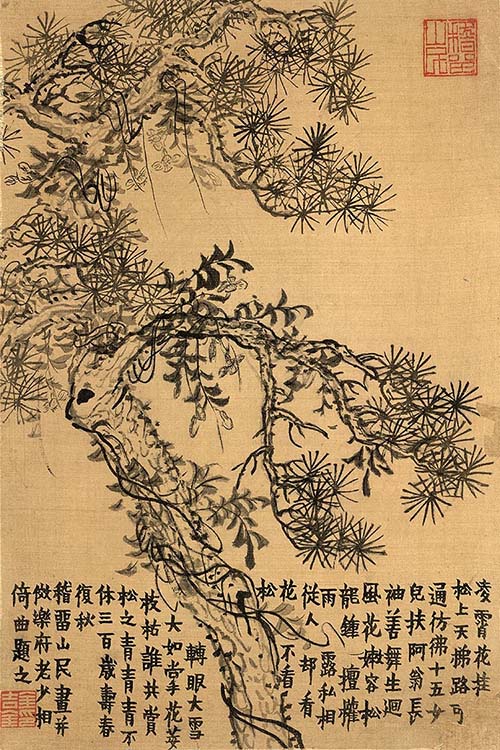 稽留山民
凌霄花挂
松上天梯路可
通彷彿十五女
兒扶阿翁長
袖善舞生迴
風花嫩容松
龍鍾擅權
雨露私相
從人却看
花不看
松
轉眼大雪
大如掌花萎
枝枯誰共賞
松之青青青不
休三百歲壽春
復秋
稽留山民畫并
倣樂府老少相
倚曲題之